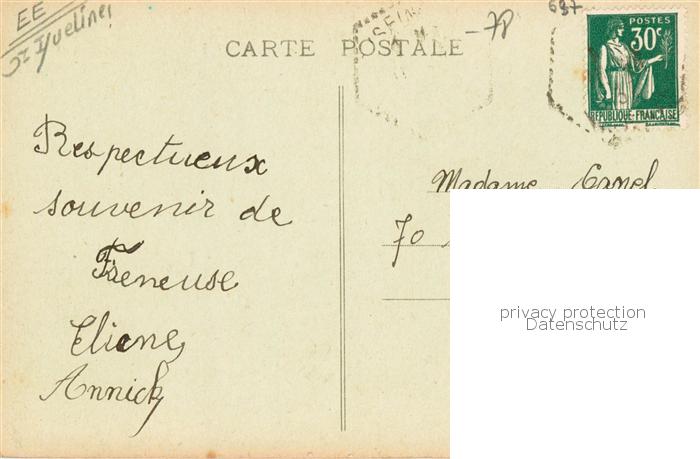 EE
Yvelines
CARTE POSTALE
-78
697
POSTES
30c
REPUBLIQUE FRANÇAISE
Respectueux
souvenir de
Freneuse
Eliane
Annick
Madame Canel
70
privacy protection
Datenschutz